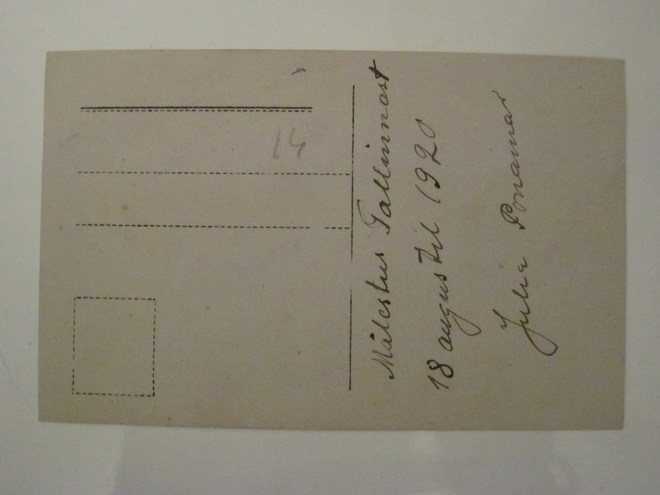 Mälestus Tallinnast
18 augustil 1920
Julia
14